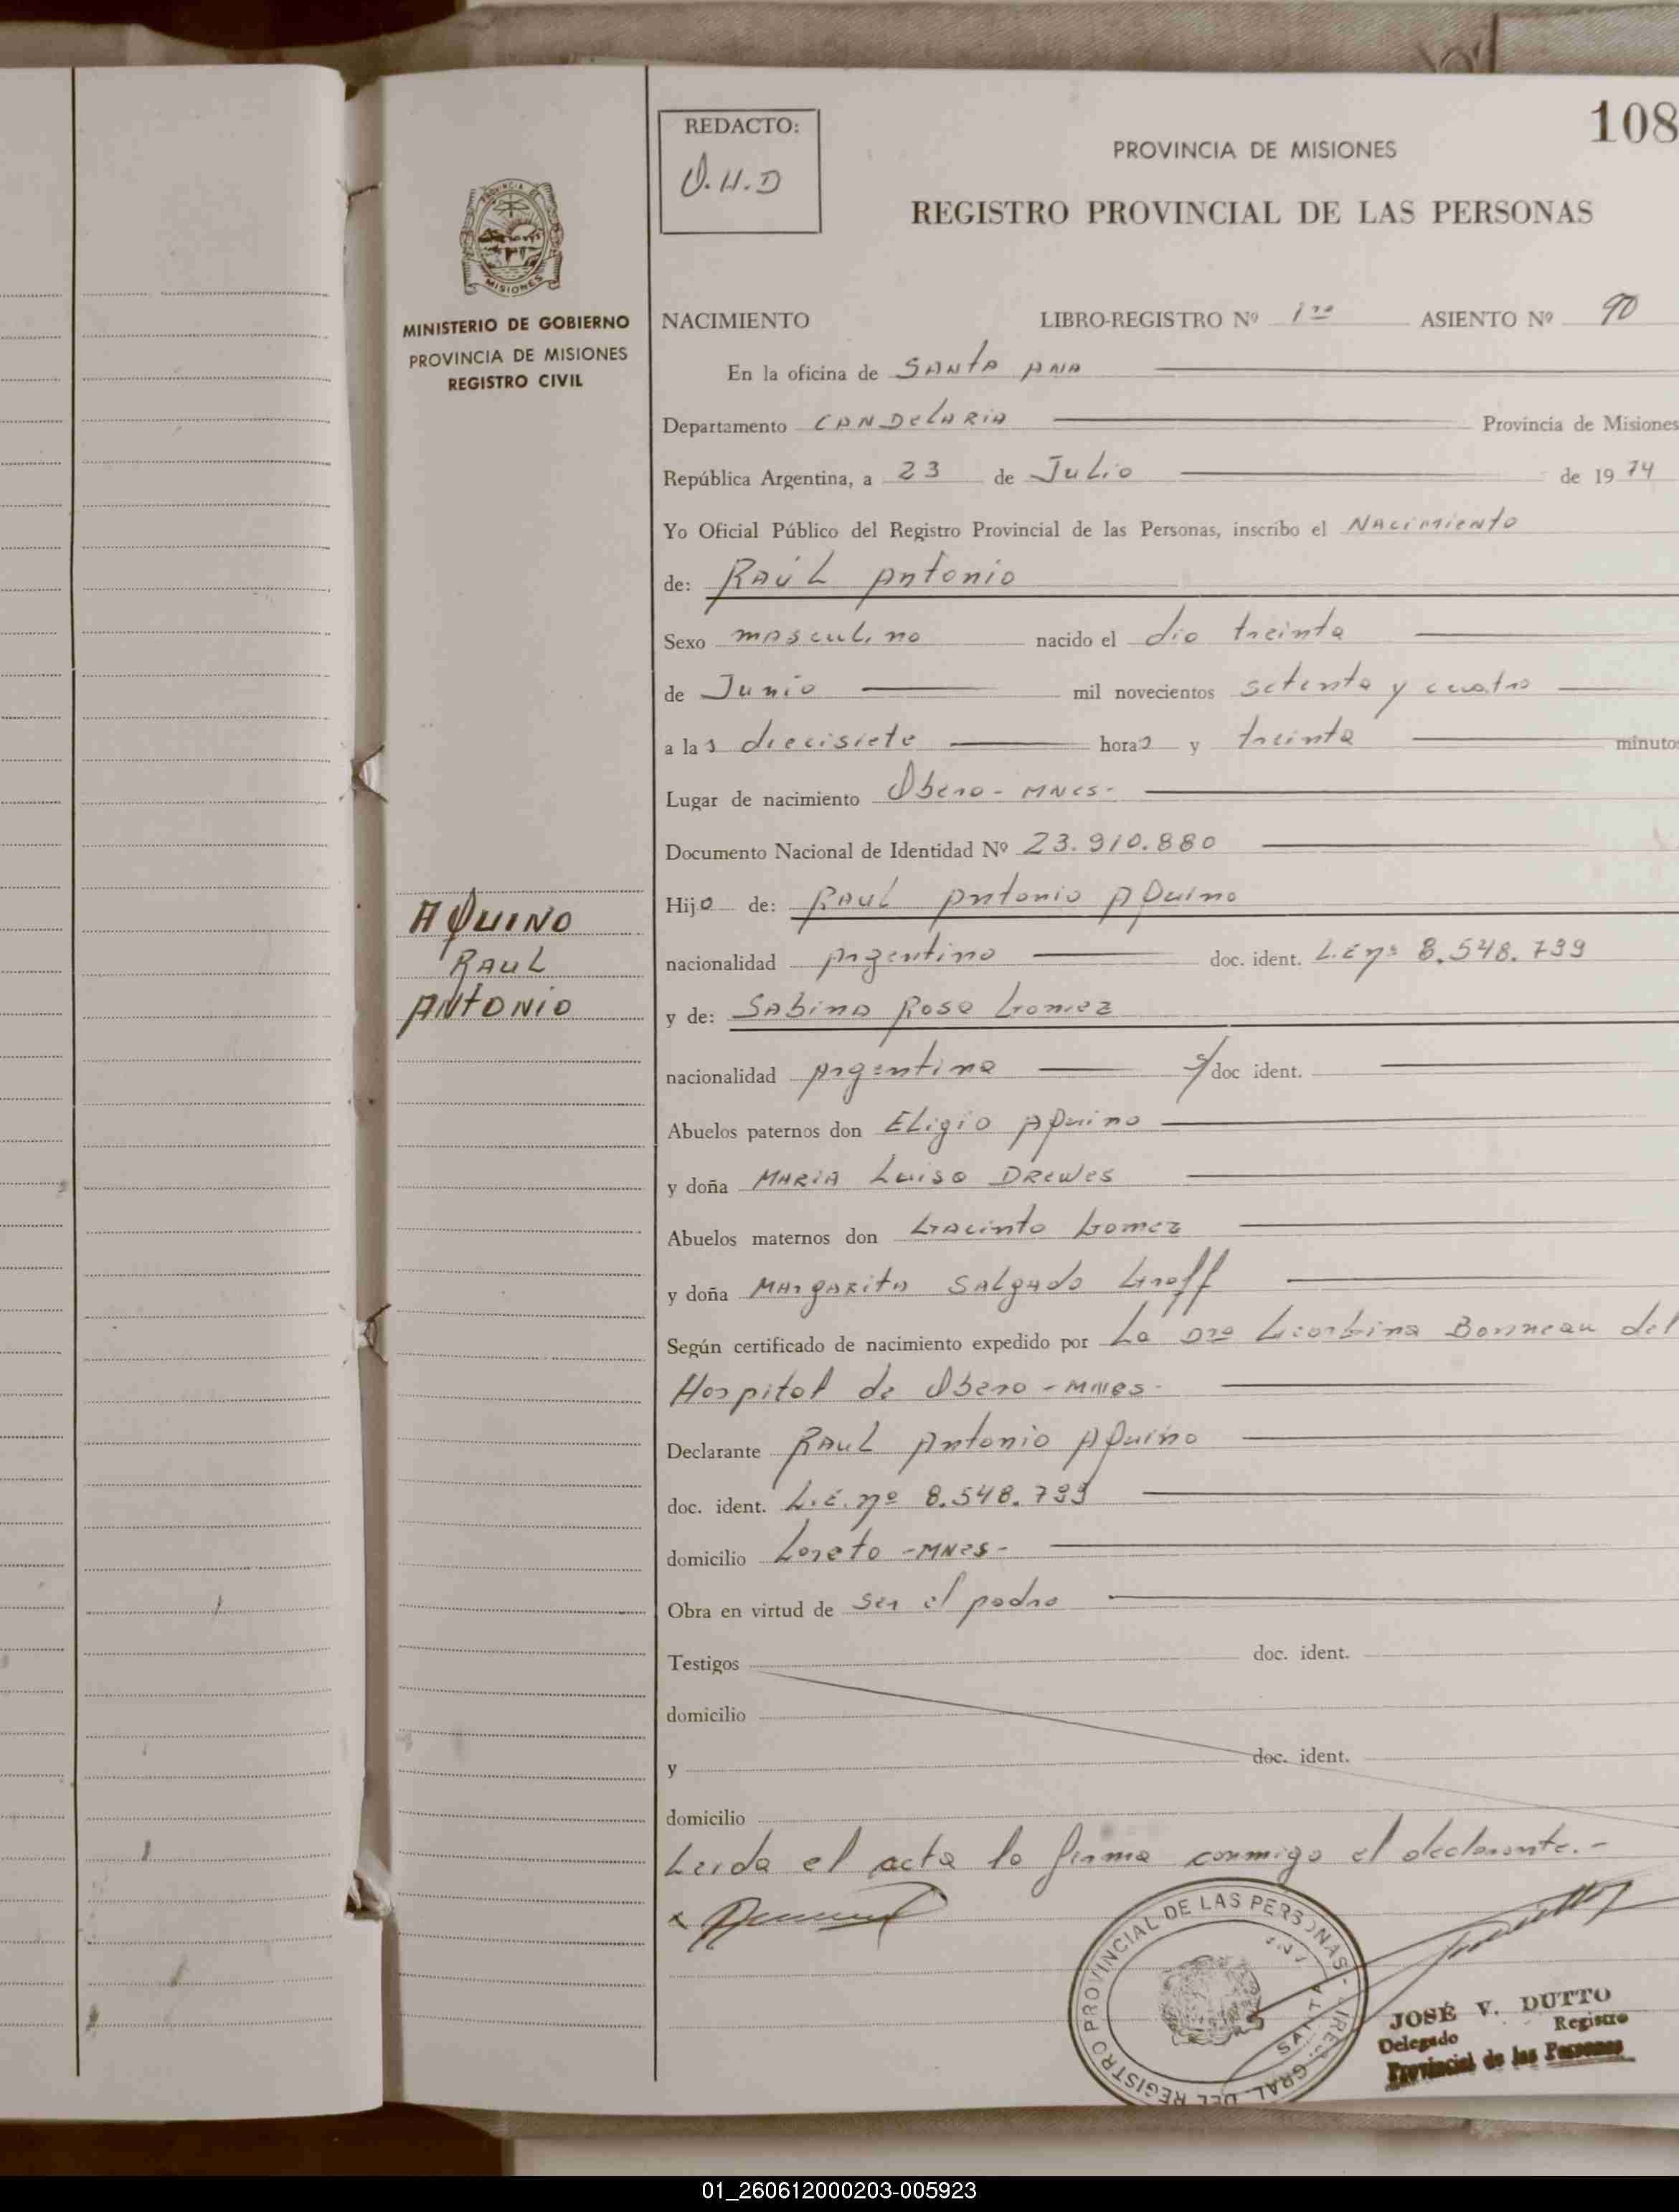 108
REDACTO:
O.H.D
PROVINCIA DE MISIONES
REGISTRO PROVINCIAL DE LAS PERSONAS
PROVINCIA DE
MISIONES
MINISTERIO DE GOBIERNO
PROVINCIA DE MISIONES
REGISTRO CIVIL
NACIMIENTO LIBRO-REGISTRO Nº 1ro ASIENTO Nº 90
En la oficina de SANTA ANA
Departamento CANDELARIA Provincia de Misiones
República Argentina, a 23 de Julio de 1974
Yo Oficial Público del Registro Provincial de las Personas, inscribo el Nacimiento
de: RAÚL Antonio
Sexo masculino nacido el día treinta
de Junio mil novecientos setenta y cuatro
a las diecisiete horas y treinta minutos
Lugar de nacimiento Obera - MNES-
Documento Nacional de Identidad Nº 23.910.880
Hijo de: RAUL Antonio AQuino
nacionalidad Argentino doc. ident. L.E nº 8.548.799
y de: SABINA Rosa Gomez
nacionalidad Argentina s/doc ident.
Abuelos paternos don ELigio AQuino
y doña MARIA Luisa DREWES
Abuelos maternos don Gacinto Gomez
y doña MARGARITA SALgado Groff
Según certificado de nacimiento expedido por La Dra Bonneau del
Hospital de Obera - MNES-
Declarante RAUL Antonio AQuino
doc. ident. L.E. nº 8.548.799
domicilio Loreto - MNES-
Obra en virtud de ser el padre
Testigos doc. ident.
domicilio
y doc. ident.
domicilio
Leida el acta la firma conmigo el declarante.-
AQUINO
RAUL
ANTONIO
REGISTRO PROVINCIAL DE LAS PERSONAS
GRAL. DEL REGISTRO
SANTA
JOSÉ V. DUTTO
Delegado Registro
Provincial de las Personas
01_260612000203-005923